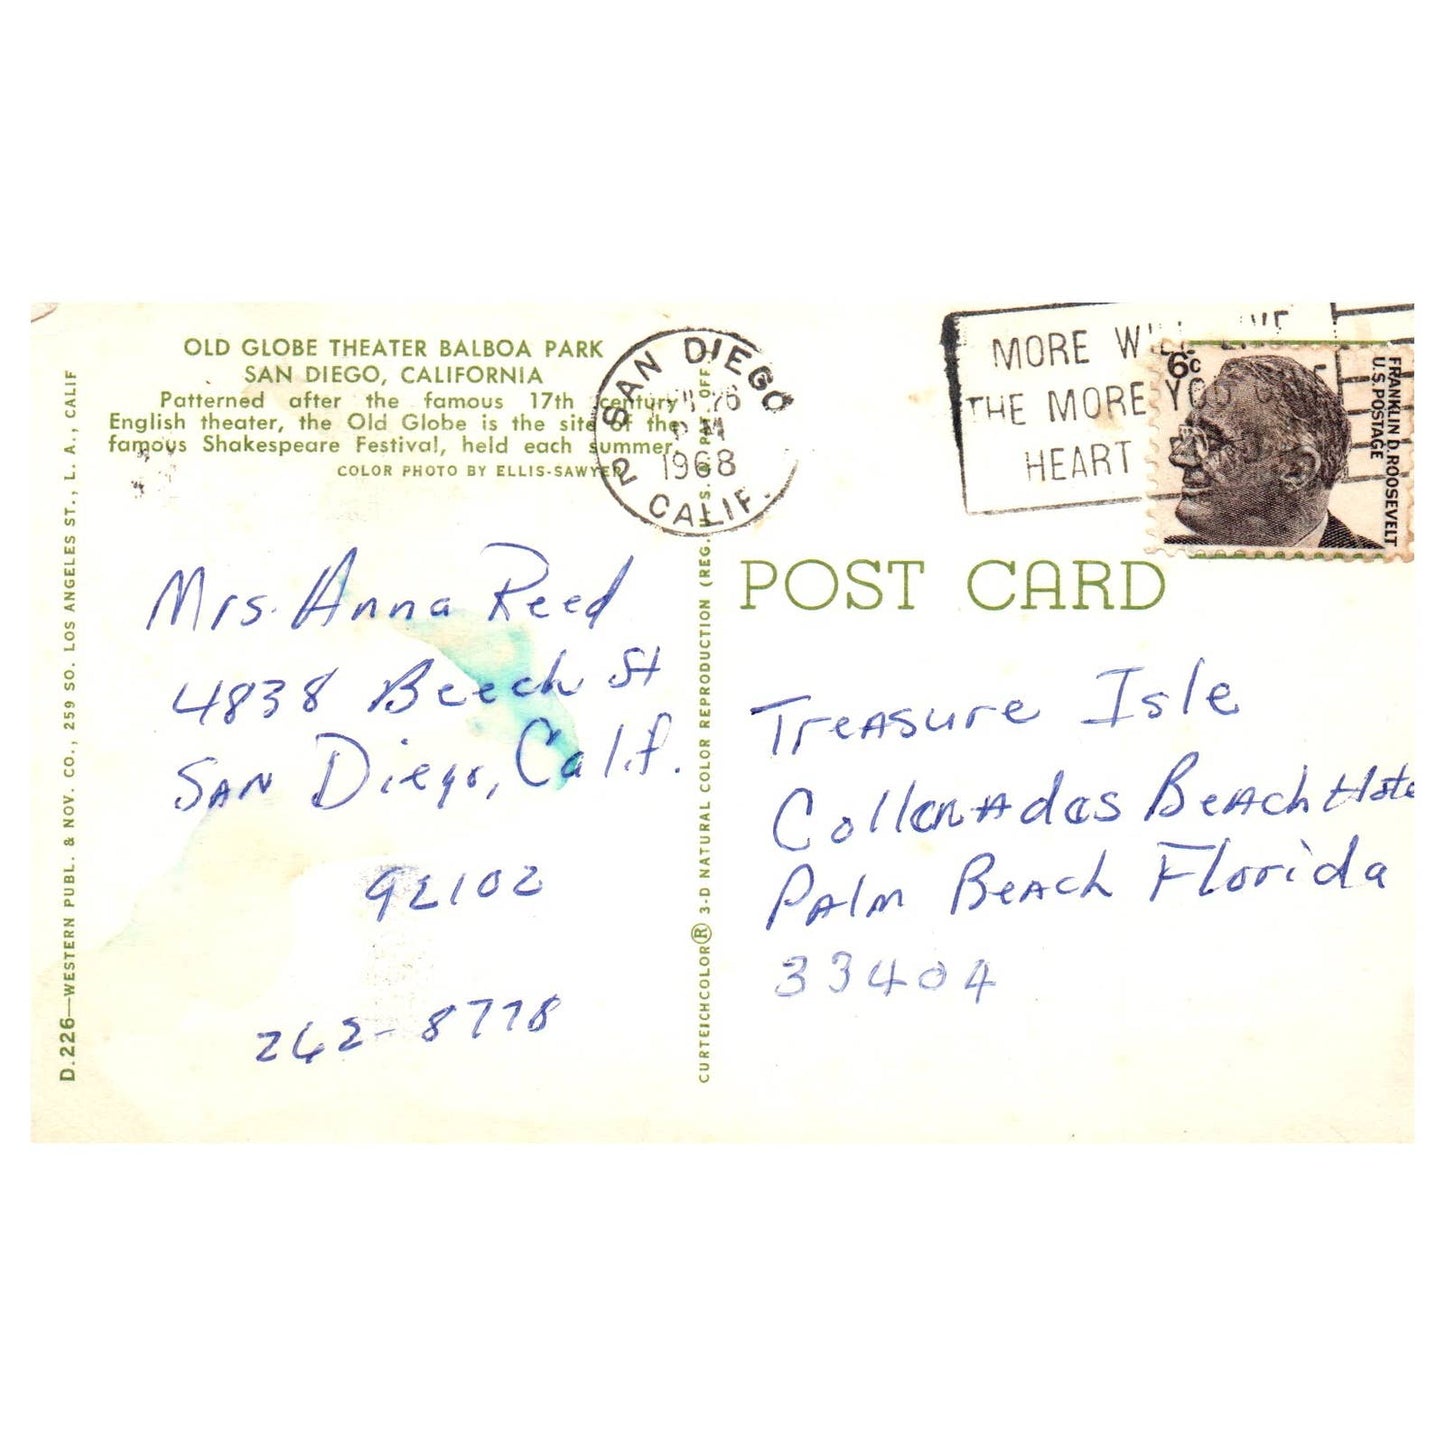 OLD GLOBE THEATER BALBOA PARK
SAN DIEGO, CALIFORNIA
Patterned after the famous 17th century
English theater, the Old Globe is the site of the
famous Shakespeare Festival, held each summer.
COLOR PHOTO BY ELLIS-SAWYER
D.226—WESTERN PUBL. & NOV. CO., 259 SO. LOS ANGELES ST., L. A., CALIF
Mrs. Anna Reed
4838 Beech St
San Diego, Calif.
92102
262-8778
CURTEICHCOLOR® 3-D NATURAL COLOR REPRODUCTION (REG. U.S. PAT. OFF.
SAN DIEGO
26
PM
1968
2 CALIF.
MORE WILL LIVE
THE MORE YOU
HEART
6c
FRANKLIN D. ROOSEVELT
U.S. POSTAGE
POST CARD
Treasure Isle
Collonades Beach Hote
Palm Beach Florida
33404